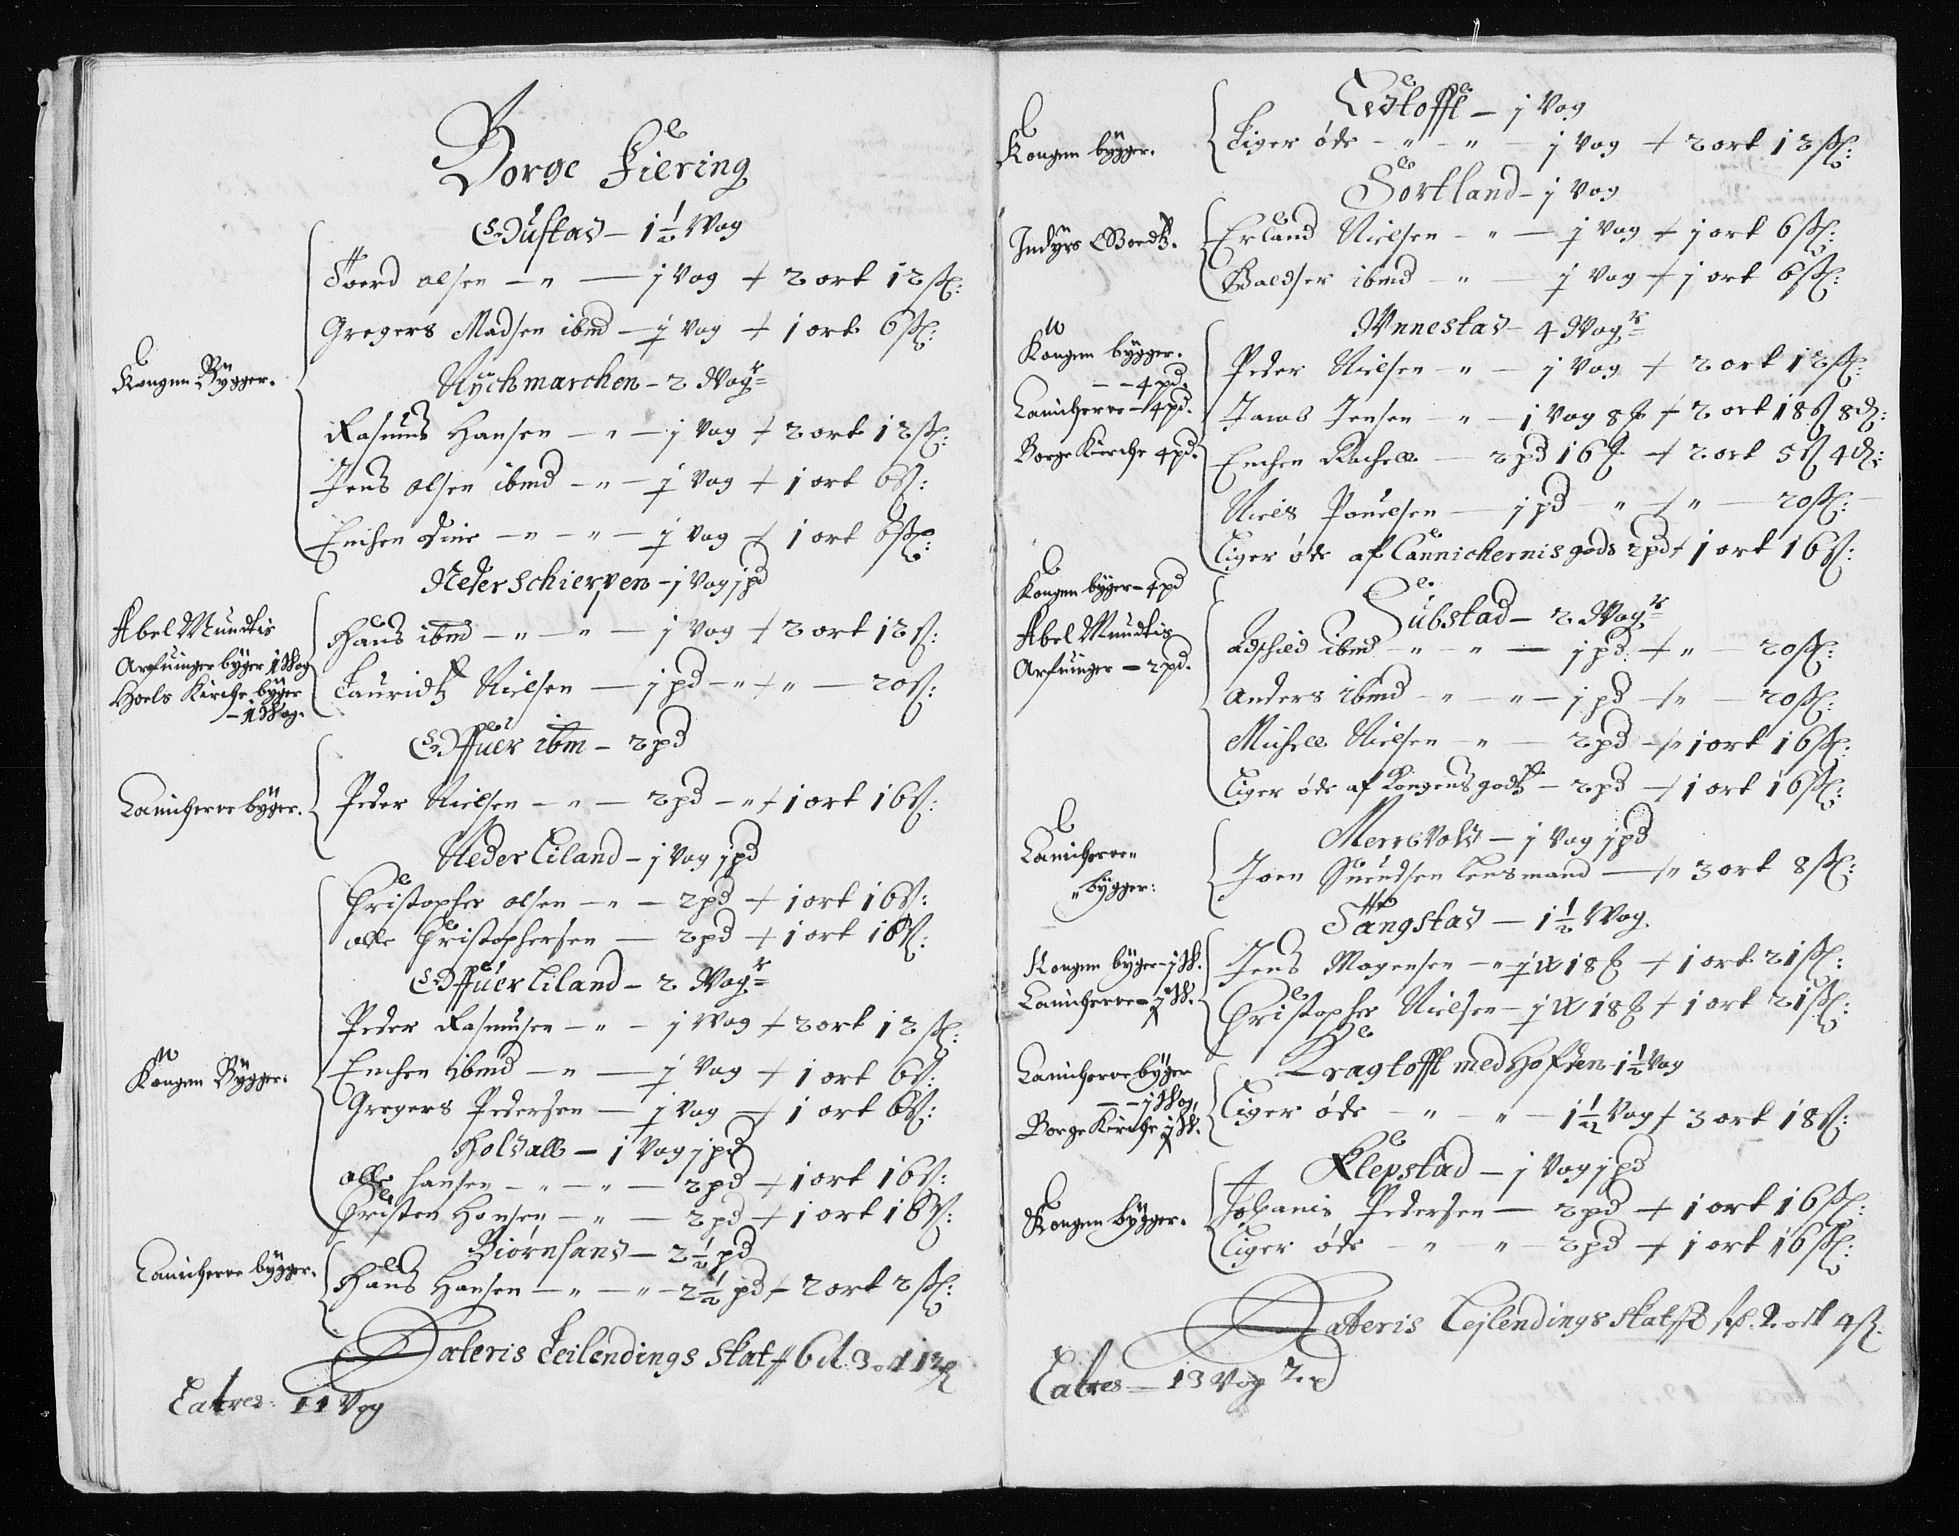 Borge Fiering
Øustad – 1½ Wog
Kongen Bygger.
Siverd olsen – „ – j Vog + 2 ort 12 sk:
Gregers Madsen ibmd – ½ Vog + 1 ort 6 sk:
Nychmarchen – 2 Wogr
Rasmus Hansen – „ – j Vog + 2 ort 12 sk:
Jens olsen ibmd – „ – ½ Vog + 1 ort 6 s:
Enchen Dine – „ – „ – ½ Vog + 1 ort 6 sk:
Nederschierpen – j Vog j pd
Abel Mundtis
Arfuinger byger 1 Wog
Hoels Kirche byger
– ½ Wog.
Hans ibmd – „ – „ – j Vog + 2 ort 12 s:
Lauridtz Nielsen – j pd – „ + „ – 20 s:
Øffuer ibm – 2 pd
Canicherne byger.
Peder Nielsen – „ – 2 pd – „ + 1 ort 16 s:
Neder Eiland – j Vog j pd
Christopher olsen – „ – 2 pd + 1 ort 16 s:
olle Christophersen – 2 pd + 1 ort 16 s:
Øffuer Eiland – 2 Wogr
Kongen Bygger.
Peder Rasmusen – „ – j Wog + 2 ort 12 sk:
Enchen ibmd – „ – ½ Vog + 1 ort 6 s:
Gregers Pedersen – ½ Vog + 1 ort 6 s:
Holdall – j Vog j pd
olle hansen – „ – „ – 2 pd + 1 ort 16 s:
Christen Hansen – „ – 2 pd + 1 ort 16 s:
Biørnsand – 2½ pd
Canicherne bygger.
Hans Hansen – „ – „ – 2½ pd + 2 ort 2 sk:
Lateris Leilendings Skat 6 d 3 ort 12
Latres: 11 Vog
Tofft – j Vog
Kongen bygger.
Liger øde – „ – „ – j Vog + 2 ort 12 sk:
Sortland – j Vog
Indyrs Goedtz.
Erland Nielsen – „ – ½ Vog + j ort 6 sk:
Baldser ibmd – „ – ½ Vog + j ort 6 sk:
Wnnestad – 4 Wogr
Kongen bygger.
– – 4 pd.
Canicherne – 4 pd.
Borge Kirche 4 pd.
Peder Nielsen – „ – j Vog + 2 ort 12 sk:
Jacob Jensen „ – j Vog 8 + 2 ort 18 s 8:
Enchen Rachell – 2 pd 16 + 2 ort 5 s 4:
Niels Pouelsen – j pd – „ + „ – 20 sk:
Liger øde af Cannichernis gods 2 pd + 1 ort 16 s:
Substad – 2 Wogr
Kongen byger – 4 pd
Abel Mundtis
Arfuinger – 2 pd.
ibmd – „ – „ – j pd. + „ – 20 sk:
Anders ibmd – „ – „ – j pd + – 20 sk:
Michell Nielsen – „ – 2 pd + 1 ort 16 sk:
Liger øde af Kongens godtz – 2 pd + 1 ort 16 sk:
Merrevold – j Vog j pd
Canicherne „
„ bygger:
Joen Suendsen Lensmand – + 3 ort 8 sk:
Stangstad – 1½ Wog
Kongen byger – j W.
Canicherne – ½ W.
Jens Mogensen – „ ½ W 18 + 1 ort 21 sk:
Christopher Nielsen – ½ W 18 + 1 ort 21 sk:
Kragtofft med Hofden 1½ Vog
Canicherne byger
– – j Wog,
Borge Kirche ½ W.
Liger øde – „ – „ – 1½ Vog + 3 ort 18 s:
Klepstad – j Vog j pd
Kongen bygger.
Johanis Pedersen – 2 pd + 1 ort 16 sk:
Liger øde – „ – „ – 2 pd + 1 ort 16 sk:
Lateris Lejlendings Skat 2 ort 4 s.
Latres – 13 Vog 2 pd